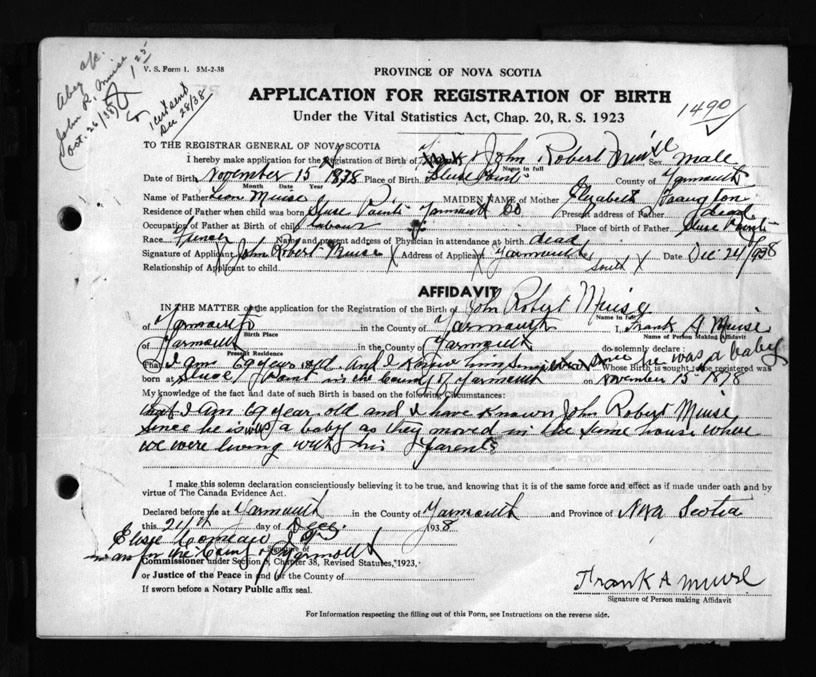 John R. Muise
1 25
V. S. Form 1. 5M-2-38
PROVINCE OF NOVA SCOTIA
APPLICATION FOR REGISTRATION OF BIRTH
1490
Under the Vital Statistics Act, Chap. 20, R. S. 1923
TO THE REGISTRAR GENERAL OF NOVA SCOTIA
I hereby make application for the Registration of Birth of John Robert Muise Sex male
Name in full
Date of Birth November 15 1878 Place of Birth Sluse Point County of Yarmouth
Month Date Year
Name of Father Muise MAIDEN NAME of Mother Elizabeth
Residence of Father when child was born Sluse Point Yarmouth Co Present address of Father dead
Occupation of Father at Birth of child labour Place of birth of Father Sluse Point
Race Name and present address of Physician in attendance at birth dead
Signature of Applicant John Robert Muise Address of Applicant Yarmouth south Date Dec 24/1938
Relationship of Applicant to child
AFFIDAVIT
IN THE MATTER of the application for the Registration of the Birth of John Robert Muise
Name in full
of Yarmouth in the County of Yarmouth I, Frank A Muise
Birth Place Name of Person Making Affidavit
of Yarmouth in the County of Yarmouth do solemnly declare:
Present Residence
That I am 69 years old and I know him since he was a baby Whose Birth is sought to be registered was
born at Sluce Point in the County of Yarmouth on November 15 1878
My knowledge of the fact and date of such Birth is based on the following Circumstances:
that I am 69 year old and I have known John Robert Muise
since he is was a baby as they moved in the same house whare
we were living with his Parents
I make this solemn declaration conscientiously believing it to be true, and knowing that it is of the same force and effect as if made under oath and by
virtue of The Canada Evidence Act.
Declared before me at Yarmouth in the County of Yarmouth and Province of Nova Scotia
this 24th day of Dec 1938
Elisé Comeau J P
in an for the County of Yarmouth
Signature of
Commissioner under Section Chapter 38, Revised Statutes, 1923,
or Justice of the Peace in and for the County of
If sworn before a Notary Public affix seal.
Frank A Muise
Signature of Person making Affidavit
For Information respecting the filling out of this Form, see Instructions on the reverse side.